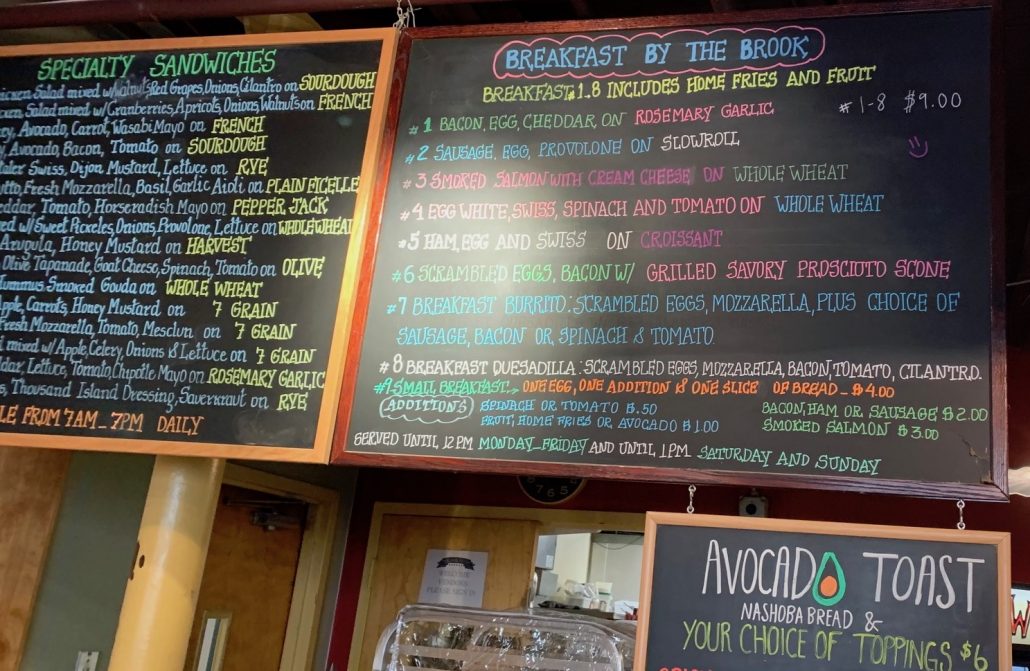 SPECIALTY SANDWICHES
Salad mixed w/Walnuts, Red Grapes, Onions, Cilantro on SOURDOUGH
Salad mixed w/Cranberries, Apricots, Onions, Walnuts on FRENCH
Avocado, Carrot, Wasabi Mayo on FRENCH
Avocado, Bacon, Tomato on SOURDOUGH
Swiss, Dijon Mustard, Lettuce on RYE
Fresh Mozzarella, Basil, Garlic Aioli on PLAIN FICELLE
Tomato, Horseradish Mayo on PEPPER JACK
w/ Sweet Pickeles, Onions, Provolone, Lettuce on WHOLEWHEAT
Arugula, Honey Mustard on HARVEST
Olive Tapanade, Goat Cheese, Spinach, Tomato on OLIVE
Smoked Gouda on WHOLE WHEAT
Apple, Carrots, Honey Mustard on 7 GRAIN
Fresh Mozzarella, Tomato, Mesclun on 7 GRAIN
mixed w/ Apple, Celery, Onions & Lettuce on 7 GRAIN
Lettuce, Tomato, Chipotle Mayo on ROSEMARY GARLIC
Thousand Island Dressing, Saverkraut on RYE
FROM 7AM_ 7PM DAILY
BREAKFAST BY THE BROOK
BREAKFAST #1-8 INCLUDES HOME FRIES AND FRUIT
#1-8 $9.00
#1 BACON, EGG, CHEDDAR, ON ROSEMARY GARLIC
#2 SAUSAGE, EGG, PROVOLONE ON SLOWROLL
#3 SMOKED SALMON WITH CREAM CHEESE ON WHOLE WHEAT
#4 EGG WHITE, SWISS, SPINACH AND TOMATO ON WHOLE WHEAT
#5 HAM, EGG AND SWISS ON CROISSANT
#6 SCRAMBLED EGGS, BACON W/ GRILLED SAVORY PROSCIUTO SCONE
#7 BREAKFAST BURRITO: SCRAMBLED EGGS, MOZZARELLA, PLUS CHOICE OF
SAUSAGE, BACON OR SPINACH & TOMATO
#8 BREAKFAST QUESADILLA: SCRAMBLED EGGS, MOZZARELLA, BACON, TOMATO, CILANTRO.
#9 SMALL BREAKFAST: ONE EGG, ONE ADDITION & ONE SLICE OF BREAD_ $4.00
ADDITIONS
SPINACH OR TOMATO $.50
FRUIT, HOME FRIES OR AVOCADO $1.00
BACON, HAM OR SAUSAGE $2.00
SMOKED SALMON $3.00
SERVED UNTIL 12PM MONDAY_FRIDAY AND UNTIL 1PM SATURDAY AND SUNDAY
WELCOME
VENDORS
PLEASE SIGN IN
AVOCADO TOAST
NASHOBA BREAD &
YOUR CHOICE OF TOPPINGS $6